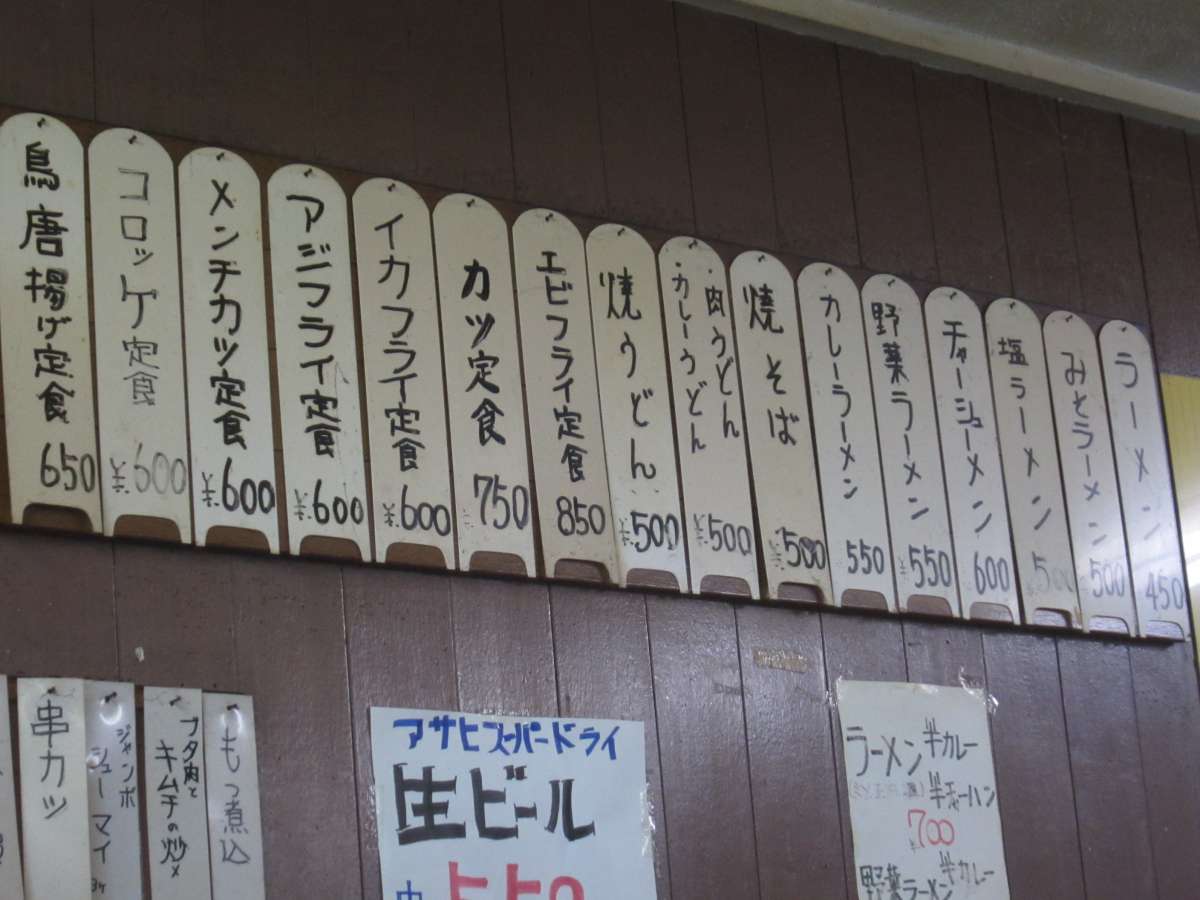 ラーメン 450
みそラーメン 500
塩ラーメン 500
チャーシューメン 600
野菜ラーメン ¥550
カレーラーメン 550
焼そば ¥500
肉うどん
カレーうどん ¥500
焼うどん ¥500
エビフライ定食 850
カツ定食 750
イカフライ定食 ¥600
アジフライ定食 ¥600
メンチカツ定食 ¥600
コロッケ定食 ¥600
鳥唐揚げ定食 650
もつ煮込
ブタ肉と
キムチの炒メ
ジャンボ
シューマイ 3ケ
串カツ
アサヒスーパードライ
生ビール
中 550
ラーメン 半カレー
半チャーハン
¥700
野菜ラーメン 半カレー